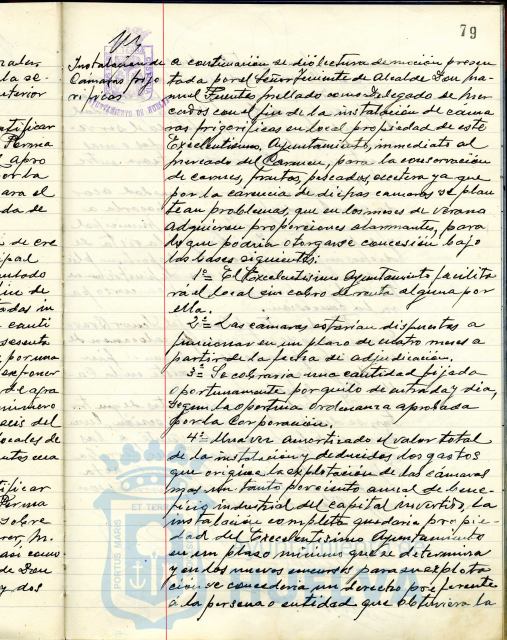 79
Instalación de
Cámaras frigo
ríficas
AYUNTAMIENTO DE HUELVA
a continuación se dió lectura de moción presen
tada por el Señor Teniente de Alcalde Don Ma-
nuel Fuentes prellado como Delegado de Mer
cados con el fin de la instalación de cáma
ras frigoríficas en local propiedad de este
Excelentísimo Ayuntamiento, inmediato al
mercado del Carmen, para la conservación
de carnes, frutas, pescados, etcétera ya que
por la carencia de dichas cámaras se plan
tean problemas, que en los meses de verano
adquieren proporciones alarmantes, para
lo que podría otorgarse concesión bajo
las bases siguientes:
1ª= El Excelentísimo Ayuntamiento facilita
rá el local sin cobro de renta alguna por
ella.
2ª= Las cámaras estarían dispuestas a
funcionar en un plazo de cuatro meses a
partir de la fecha de adjudicación.
3ª= Se cobraría una cantidad fijada
oportunamente por quilo de entrada y día,
según la oportuna ordenanza aprobada
por la Corporación.
4ª= Una vez amortizado el valor total
de la instalación y deducidos los gastos
que origine la explotación de las cámaras
mas un tanto por ciento anual de bene-
ficio industrial del capital invertido, la
instalación completa quedaría propie-
dad del Excelentísimo Ayuntamiento
en un plazo máximo que se determina
y en los nuevos concursos para su explota
ción se concedería un derecho preferente
á la persona o entidad que obtuviera la
PORTUS MARIS ET TERRAE
HUELVA